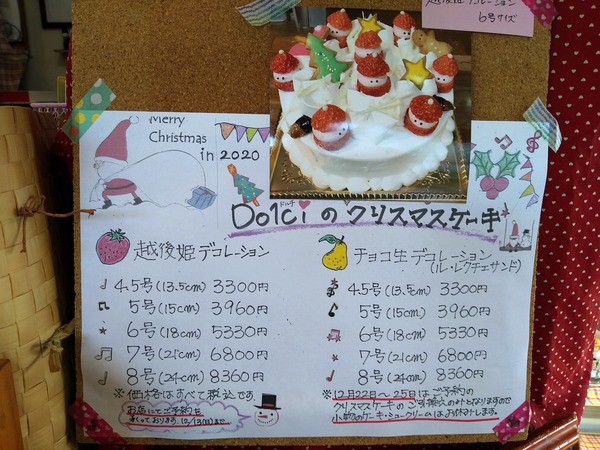 6号サイズ
Merry
Christmas
in 2020
ドルチ
Dolciのクリスマスケーキ
越後姫デコレーション
4.5号(13.5cm) 3300円
5号(15cm) 3960円
6号(18cm) 5330円
7号(21cm) 6800円
8号(24cm) 8360円
※価格はすべて税込です。
お店にてご予約を
承っております。12/13(日)まで。
チョコ生デコレーション
(ル・レクチェサンド)
4.5号(13.5cm) 3300円
5号(15cm) 3960円
6号(18cm) 5330円
7号(21cm) 6800円
8号(24cm) 8360円
※12月22日〜25日はご予約の
クリスマスケーキのご準備のみとなりますので
小物のケーキ・シュークリームはお休みします。